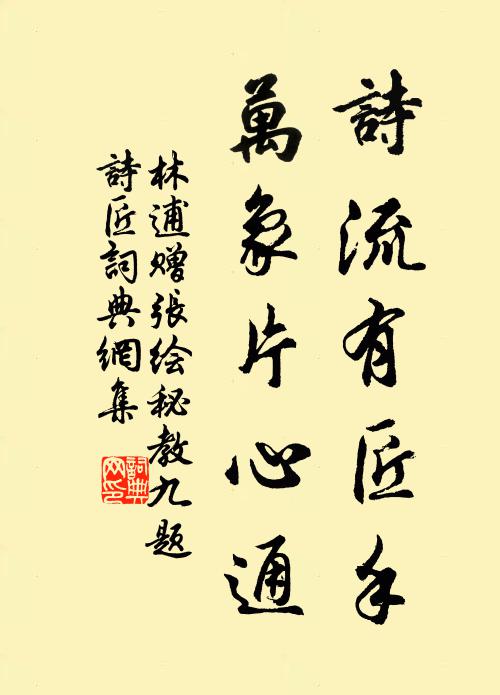 詩流有匠手
萬象片心通
林逋赠張绘秘教九题
詩匠詞典網集
詞典网印